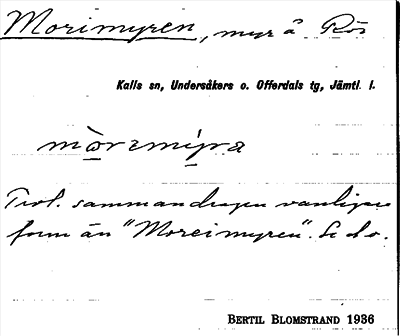 Morimyren, myr å Rör
Kalls sn, Undersåkers o. Offerdals tg, Jämtl. l.
mòrₑmi̱ra
Trol. sammandragen vanligare
form än "Moreimyren". Se d.o.
BERTIL BLOMSTRAND 1936